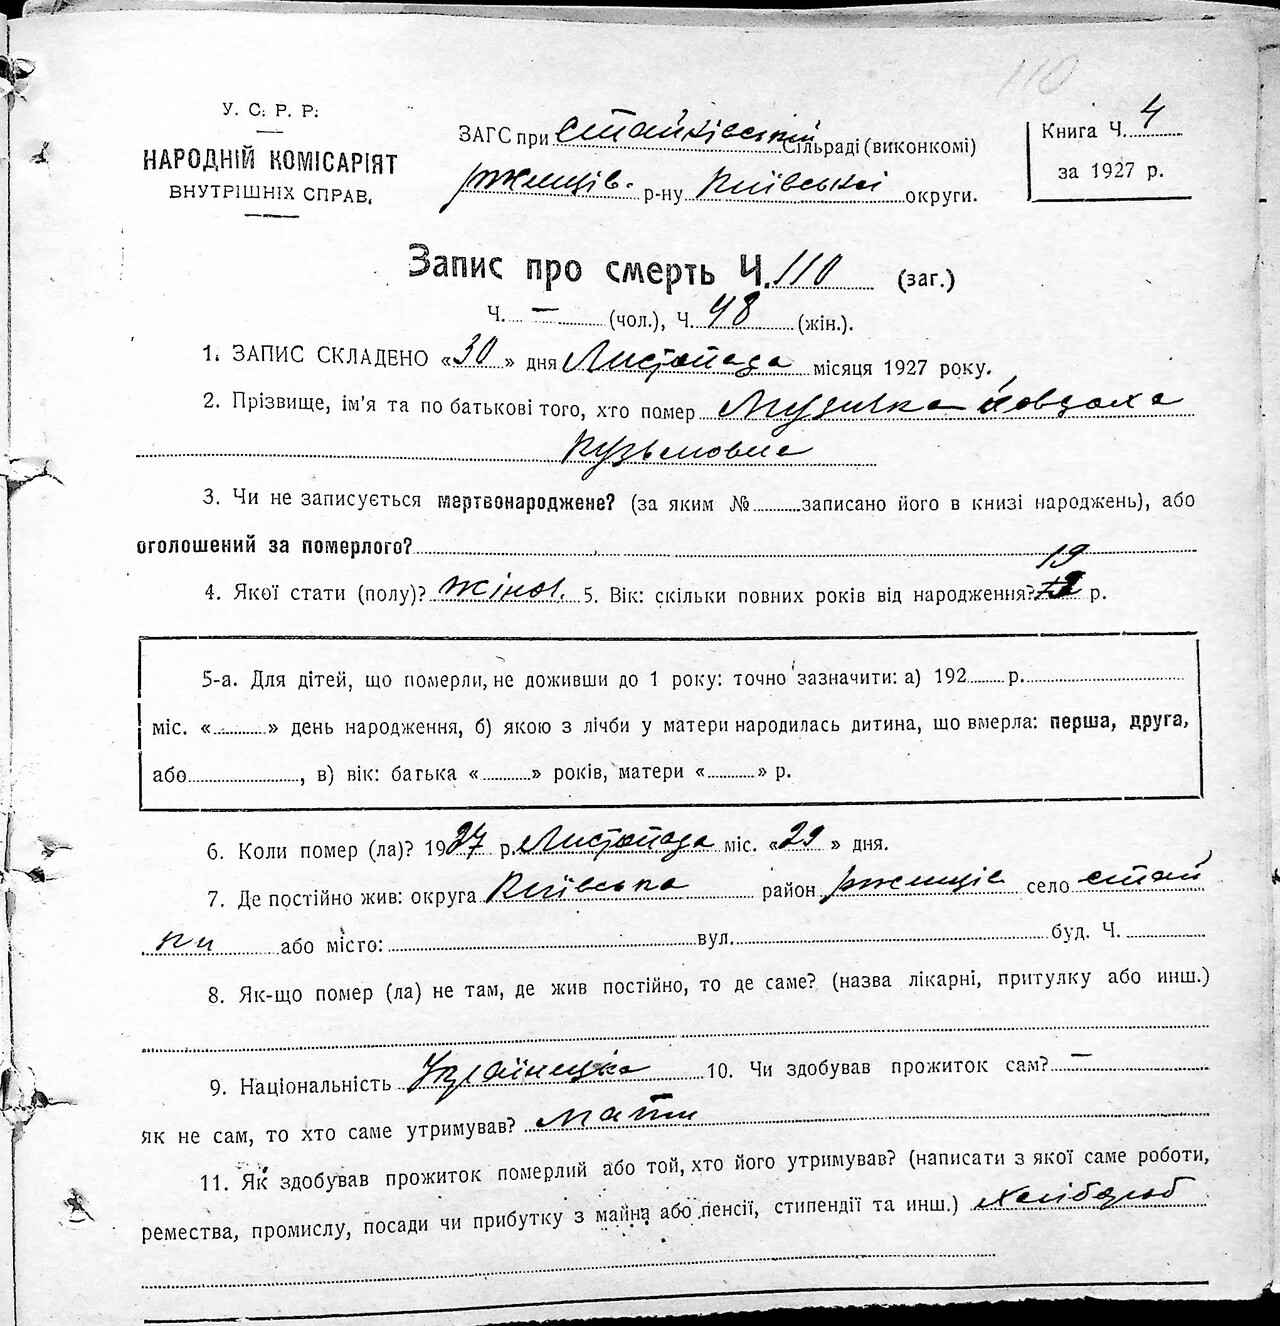 110
У. С. Р. Р.
НАРОДНІЙ КОМІСАРІЯТ
ВНУТРІШНІХ СПРАВ.
ЗАГС при Стайківській Сільраді (виконкомі)
Ржищів. р-ну Київської округи.
Книга Ч. 4
за 1927 р.
Запис про смерть Ч. 110 (заг.)
Ч. — (чол.), Ч. 48 (жін.).
1. ЗАПИС СКЛАДЕНО «30» дня Листопада місяця 1927 року.
2. Прізвище, ім'я та по батькові того, хто помер Музичка Явдоха
Кузьмовна
3. Чи не записується мертвонароджене? (за яким № записано його в книзі народжень), або
оголошений за померлого?
19
4. Якої стати (полу)? жіноч. 5. Вік: скільки повних років від народження? р.
5-а. Для дітей, що померли, не доживши до 1 року: точно зазначити: а) 192 р.
міс. « » день народження, б) якою з лічби у матери народилась дитина, що вмерла: перша, друга,
або , в) вік: батька « » років, матери « » р.
6. Коли помер (ла)? 1927 р. Листопада міс. «29» дня.
7. Де постійно жив: округа Київська район Ржищів село Стай
ки або місто: вул. буд. Ч.
8. Як-що помер (ла) не там, де жив постійно, то де саме? (назва лікарні, притулку або инш.)
9. Національність Українська 10. Чи здобував прожиток сам? —
як не сам, то хто саме утримував? мати
11. Як здобував прожиток померлий або той, хто його утримував? (написати з якої саме роботи,
ремества, промислу, посади чи прибутку з майна або пенсії, стипендії та инш.) Хлібороб